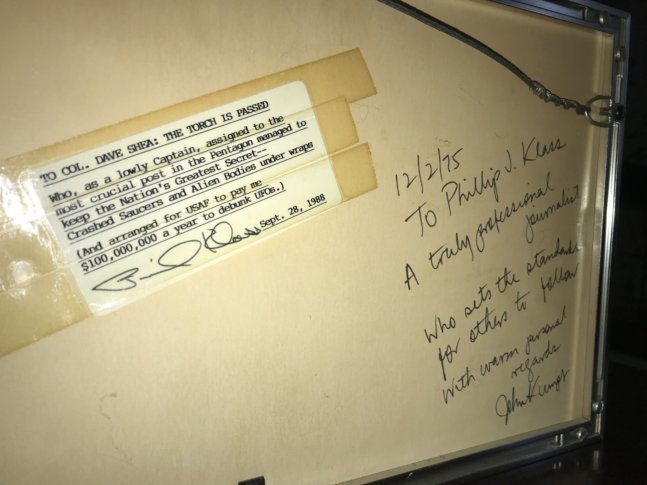 TO COL. DAVE SHEA: THE TORCH IS PASSED
Who, as a lowly Captain, assigned to the
most crucial post in the Pentagon managed to
keep the Nation's Greatest Secret--
Crashed Saucers and Alien Bodies under wraps
(And arranged for USAF to pay me
$100,000,000 a year to debunk UFOs.)
Phil Klass Sept. 28, 1988
12/2/75
To Phillip J. Klass
A truly professional
journalist
Who sets the standards
for others to follow
With warm personal
regards
John